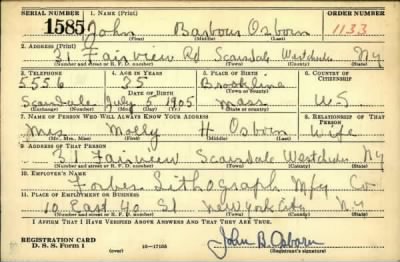 SERIAL NUMBER 1. NAME (Print) ORDER NUMBER
1585 John Barbour Osborn 1133
(First) (Middle) (Last)
2. ADDRESS (Print)
31 Fairview Rd Scarsdale Westchester NY
(Number and street or R. F. D. number) (Town) (County) (State)
3. TELEPHONE 4. AGE IN YEARS 5. PLACE OF BIRTH 6. COUNTRY OF CITIZENSHIP
5556 35 Brookline
DATE OF BIRTH (Town or county)
Scarsdale July 5 1905 Mass U.S.
(Exchange) (Number) (Mo.) (Day) (Yr.) (State or country)
7. NAME OF PERSON WHO WILL ALWAYS KNOW YOUR ADDRESS 8. RELATIONSHIP OF THAT PERSON
Mrs. Molly H Osborn Wife
(Mr., Mrs., Miss) (First) (Middle) (Last)
9. ADDRESS OF THAT PERSON
31 Fairview Scarsdale Westchester NY
(Number and street or R. F. D. number) (Town) (County) (State)
10. EMPLOYER'S NAME
Forbes Lithograph Mfg Co
11. PLACE OF EMPLOYMENT OR BUSINESS
10 East 40 St New York City NY
(Number and street or R. F. D. number) (Town) (County) (State)
I AFFIRM THAT I HAVE VERIFIED ABOVE ANSWERS AND THAT THEY ARE TRUE.
REGISTRATION CARD
D. S. S. Form 1 (over) 16-17105 John B. Osborn
(Registrant's signature)